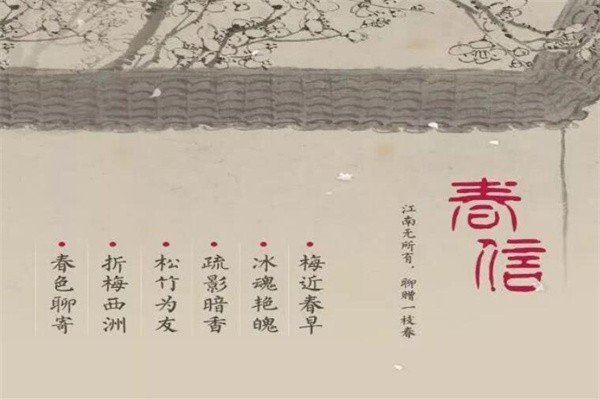 春信
江南无所有，聊赠一枝春
梅近春早
冰魂艳魄
疏影暗香
松竹为友
折梅西洲
春色聊寄